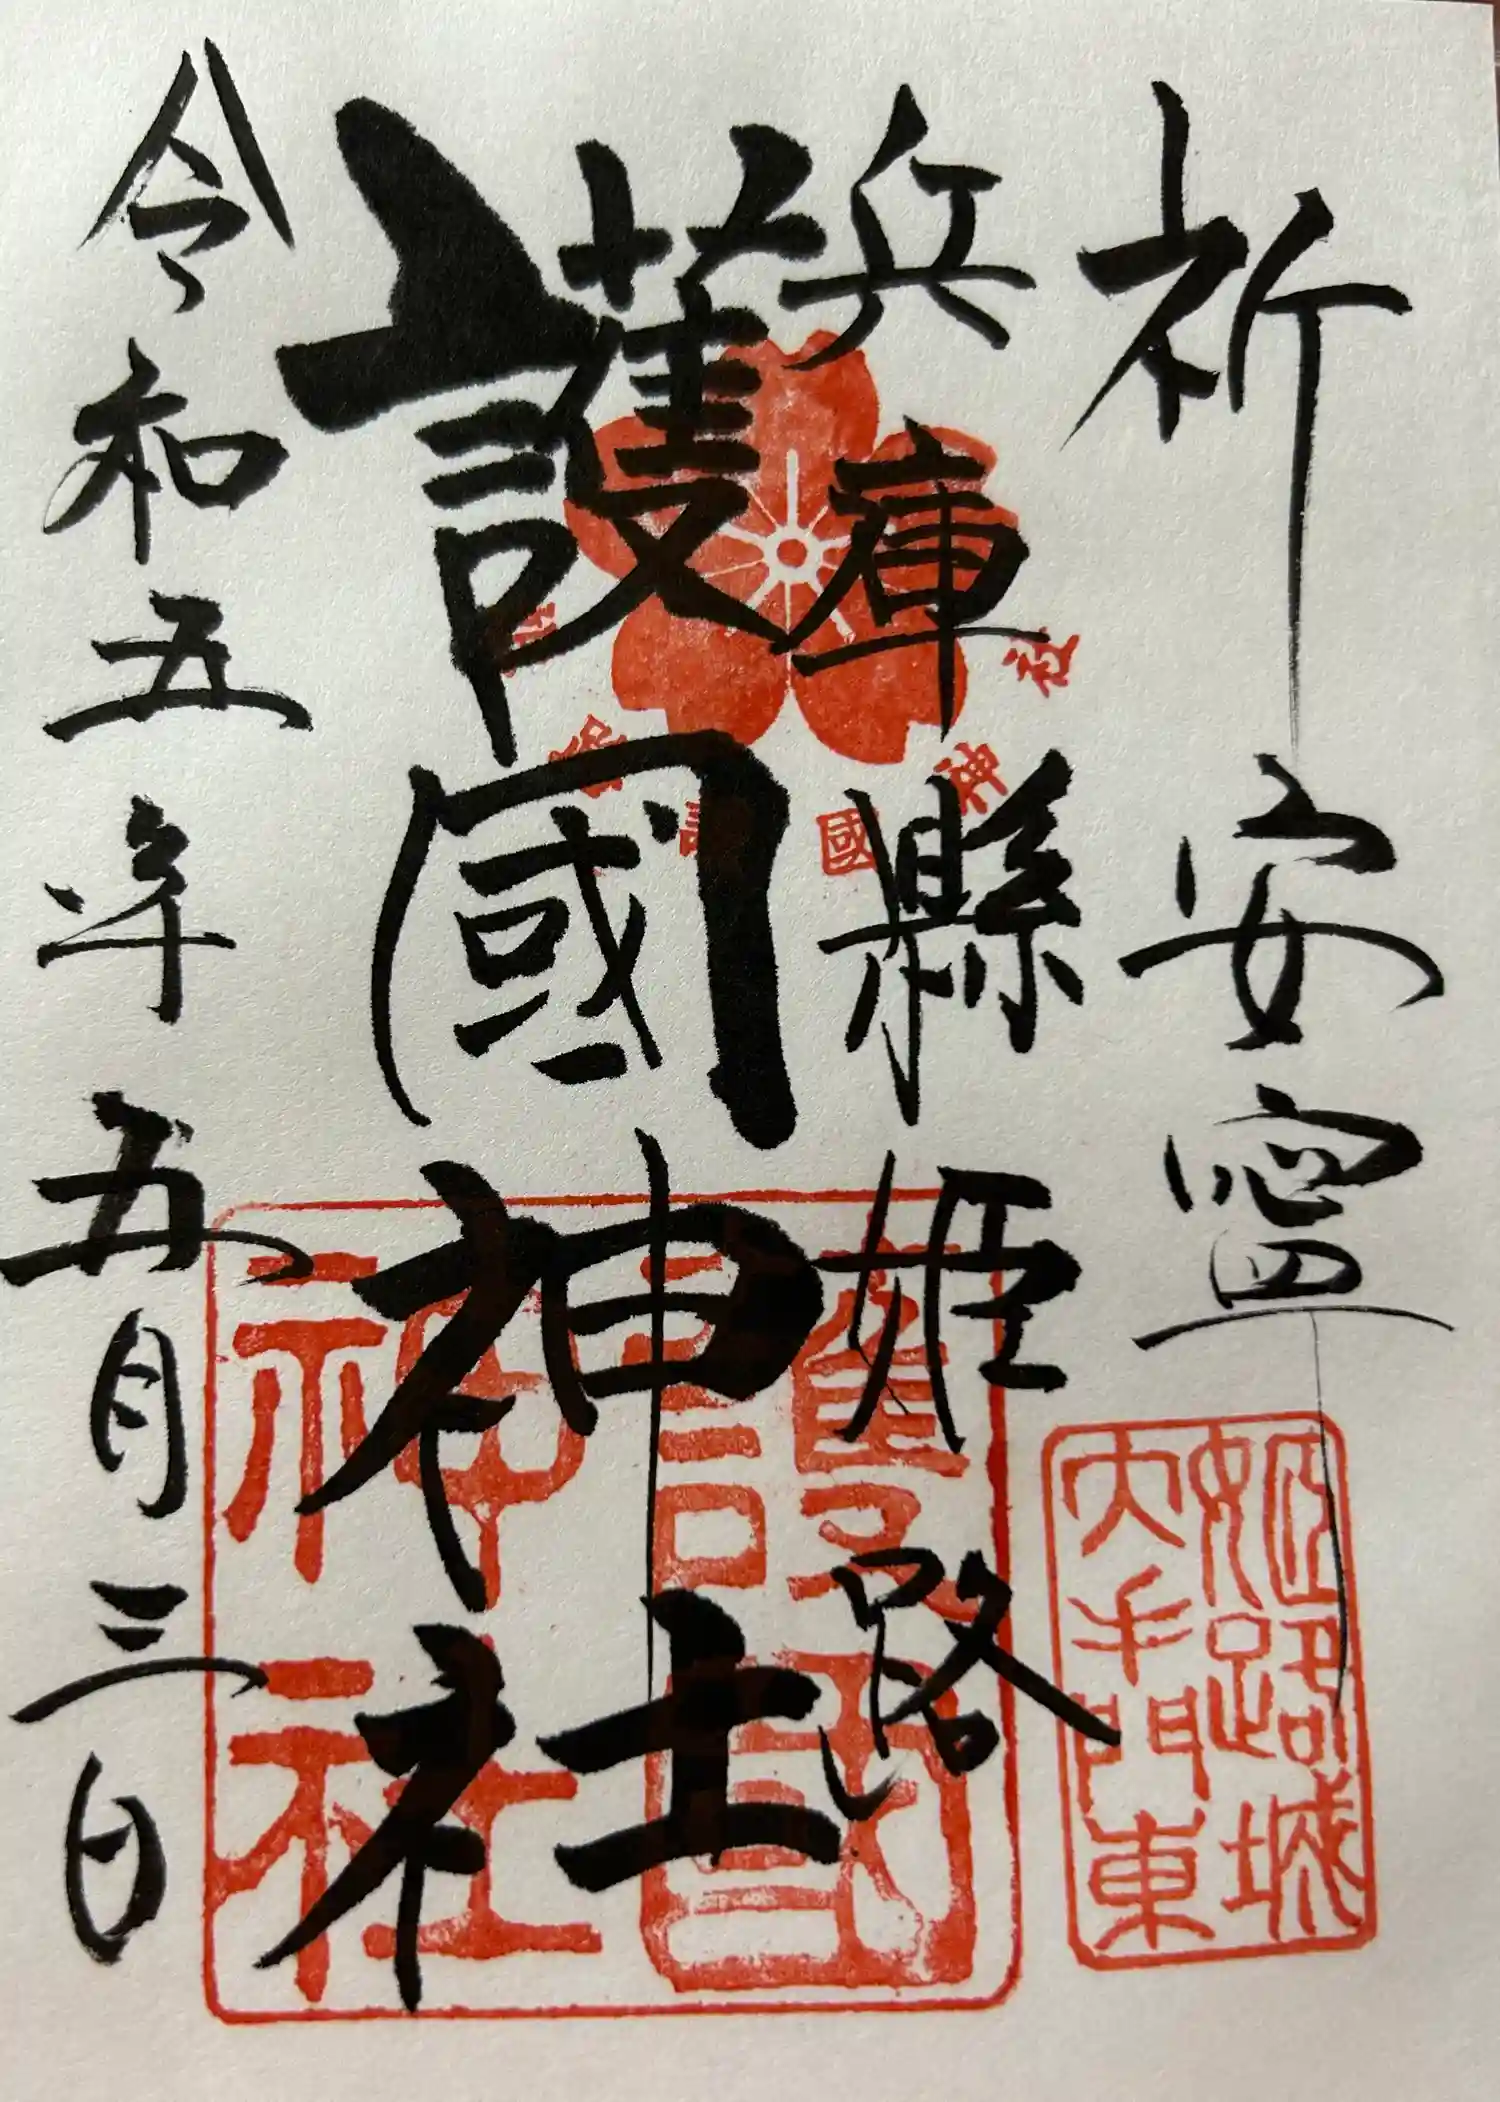 祈安寧
兵庫縣姫路
護國神社
令和五年五月三日
姫路城
大手門東
護國
神社
國神社